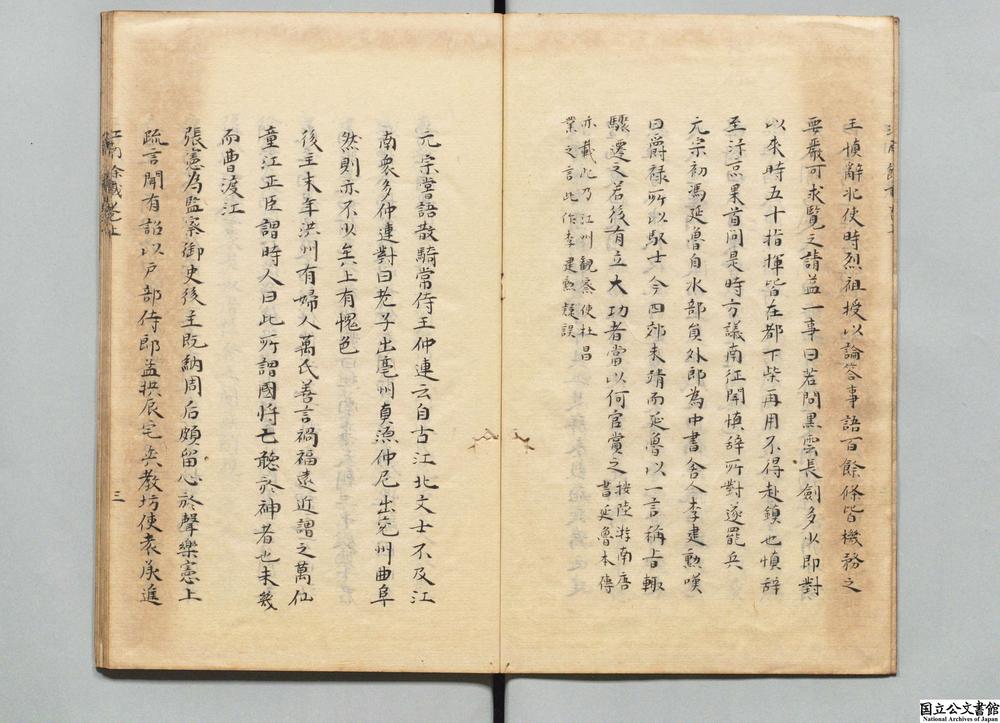 王慎辭北使時烈祖授以論荅事語百餘條皆機務之
要嚴可求覽之請益一事曰若問黑雲長劍多少即對
以來時五十指揮皆在都下柴再用不得赴鎮也慎辭
至汴京果首問是時方議南征聞慎辞所對遂罷兵
元宗初馮延魯自水部負外郎為中書舍人李建勲嘆
曰爵禄所以馭士今四郊未靖而延魯以一言稱旨輙
驟遷之若後有立大功者當以何官賞之按陸游南唐
書延魯本傳
亦載此乃江州觀察使杜昌
業之言此作李建勲疑誤
元宗嘗語散騎常侍王仲連云自古江北文士不及江
南衆多仲連對曰老子出亳州真源仲尼出兖州曲阜
然則亦不少矣上有愧色
後主末年洪州有婦人萬氏善言禍福遠近謂之萬仙
童江正臣謂時人曰此所謂國將亡聽於神者也未幾
而曹渡江
張憲為監察御史後主既納周后頗留心於聲樂憲上
疏言聞有詔以户部侍郎孟拱辰宅與教坊使袁承進
江南餘載卷上
三
国立公文書館
National Archives of Japan